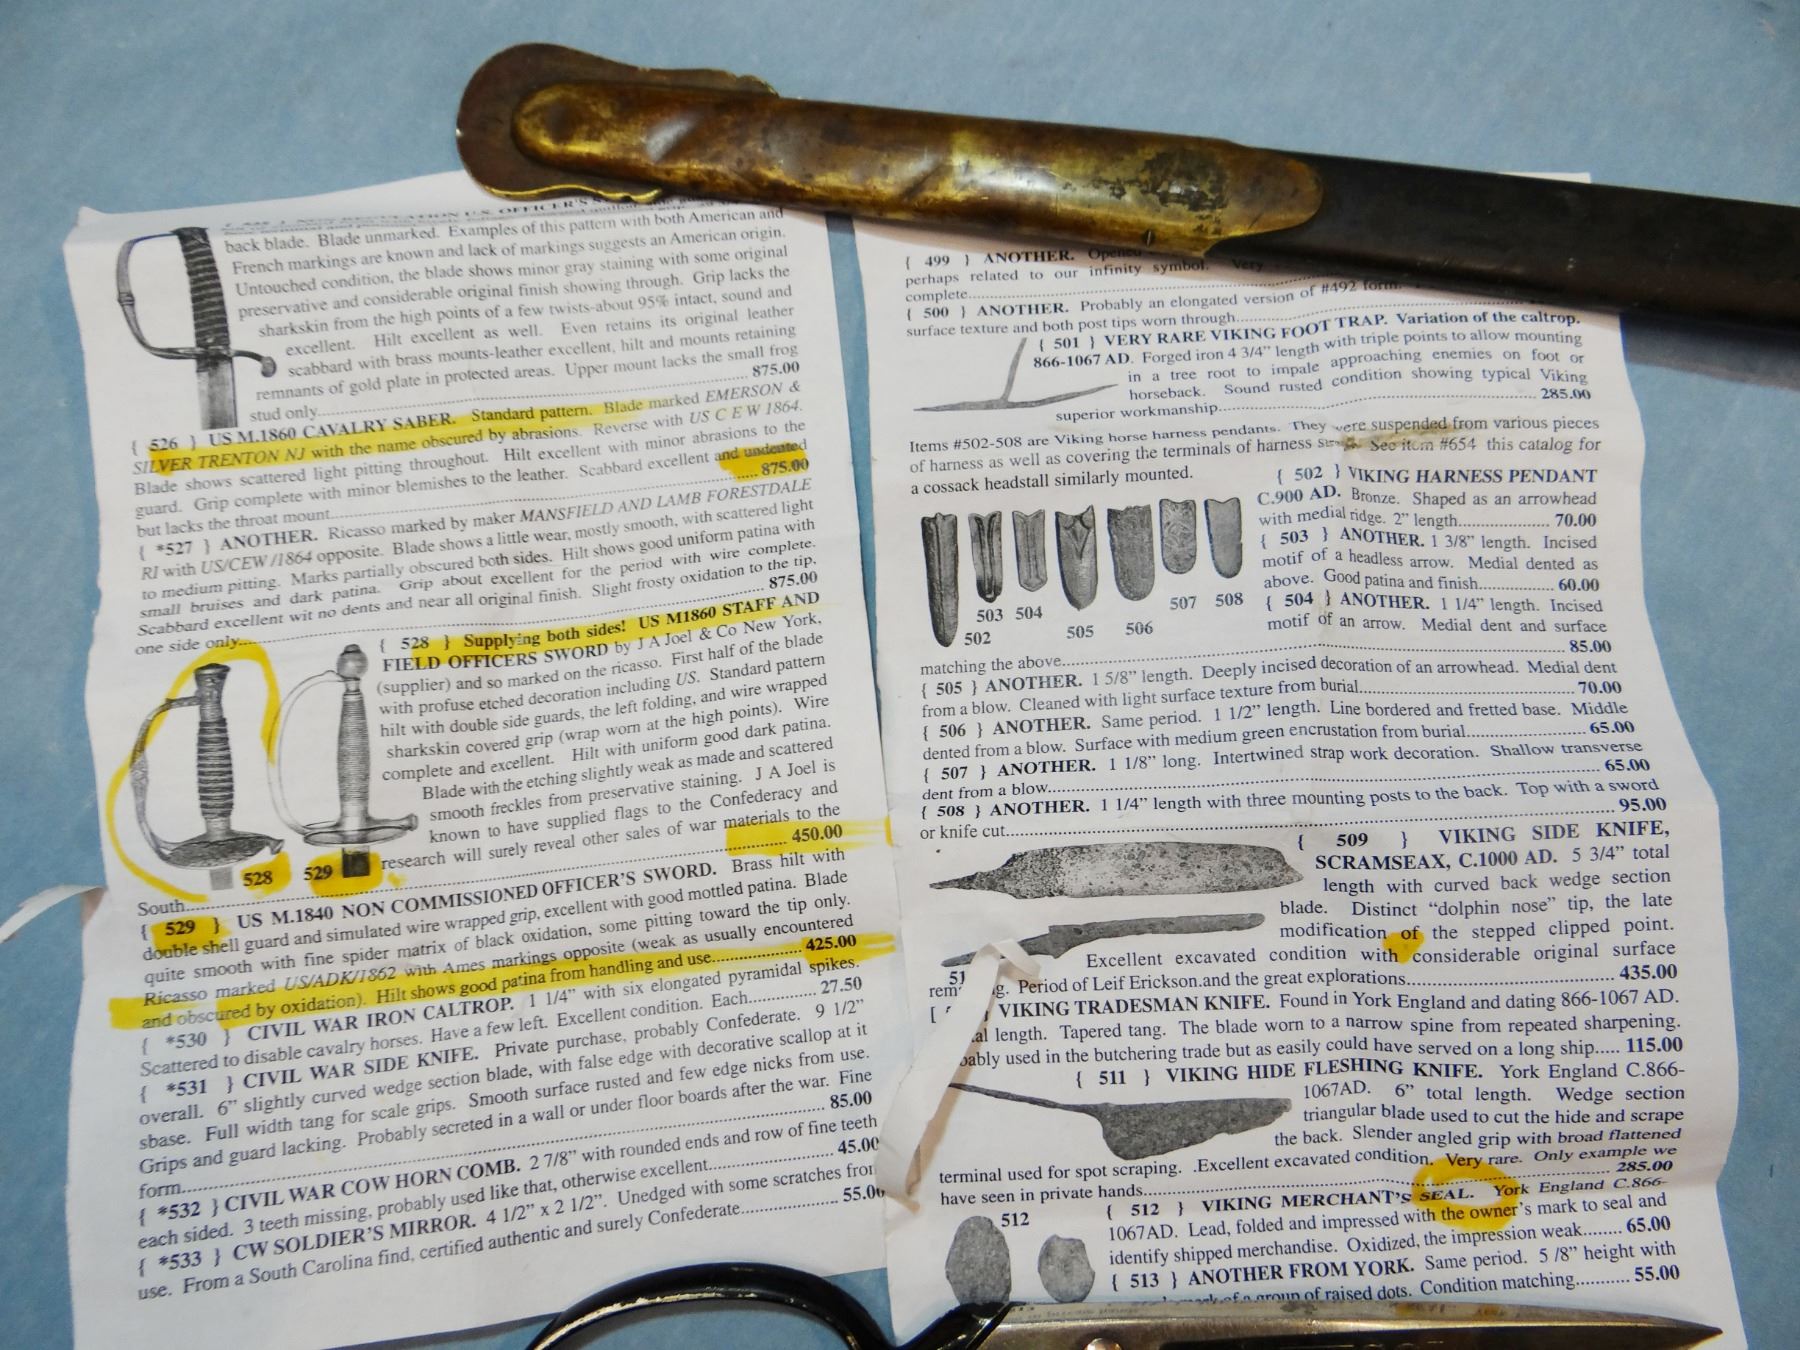 back blade. Blade unmarked. Examples of this pattern with both American and
French markings are known and lack of markings suggests an American origin.
Untouched condition, the blade shows minor gray staining with some original
preservative and considerable original finish showing through. Grip lacks the
sharkskin from the high points of a few twists-about 95% intact, sound and
excellent. Hilt excellent as well. Even retains its original leather
scabbard with brass mounts-leather excellent, hilt and mounts retaining
remnants of gold plate in protected areas. Upper mount lacks the small frog
stud only.......... 875.00
{ 526 } US M.1860 CAVALRY SABER. Standard pattern. Blade marked EMERSON &
SILVER TRENTON NJ with the name obscured by abrasions. Reverse with US C E W 1864.
Blade shows scattered light pitting throughout. Hilt excellent with minor abrasions to the
guard. Grip complete with minor blemishes to the leather. Scabbard excellent and undented
but lacks the throat mount.......... 875.00
{ *527 } ANOTHER. Ricasso marked by maker MANSFIELD AND LAMB FORESTDALE
RI with US/CEW /1864 opposite. Blade shows a little wear, mostly smooth, with scattered light
to medium pitting. Marks partially obscured both sides. Hilt shows good uniform patina with
small bruises and dark patina. Grip about excellent for the period with wire complete.
Scabbard excellent wit no dents and near all original finish. Slight frosty oxidation to the tip,
one side only.......... 875.00
{ 528 } Supplying both sides! US M1860 STAFF AND
FIELD OFFICERS SWORD by J A Joel & Co New York,
(supplier) and so marked on the ricasso. First half of the blade
with profuse etched decoration including US. Standard pattern
hilt with double side guards, the left folding, and wire wrapped
sharkskin covered grip (wrap worn at the high points). Wire
complete and excellent. Hilt with uniform good dark patina.
Blade with the etching slightly weak as made and scattered
smooth freckles from preservative staining. J A Joel is
known to have supplied flags to the Confederacy and
research will surely reveal other sales of war materials to the
South.......... 450.00
528
529
{ 529 } US M.1840 NON COMMISSIONED OFFICER'S SWORD. Brass hilt with
double shell guard and simulated wire wrapped grip, excellent with good mottled patina. Blade
quite smooth with fine spider matrix of black oxidation, some pitting toward the tip only.
Ricasso marked US/ADK/1862 with Ames markings opposite (weak as usually encountered
and obscured by oxidation). Hilt shows good patina from handling and use.......... 425.00
{ *530 } CIVIL WAR IRON CALTROP. 1 1/4" with six elongated pyramidal spikes.
Scattered to disable cavalry horses. Have a few left. Excellent condition. Each.......... 27.50
{ *531 } CIVIL WAR SIDE KNIFE. Private purchase, probably Confederate. 9 1/2"
overall. 6" slightly curved wedge section blade, with false edge with decorative scallop at it
sbase. Full width tang for scale grips. Smooth surface rusted and few edge nicks from use.
Grips and guard lacking. Probably secreted in a wall or under floor boards after the war. Fine
form.......... 85.00
{ *532 } CIVIL WAR COW HORN COMB. 2 7/8" with rounded ends and row of fine teeth
each sided. 3 teeth missing, probably used like that, otherwise excellent.......... 45.00
{ *533 } CW SOLDIER'S MIRROR. 4 1/2" x 2 1/2". Unedged with some scratches from
use. From a South Carolina find, certified authentic and surely Confederate.......... 55.00
{ 499 } ANOTHER. Opened
perhaps related to our infinity symbol. Very
complete..........
{ 500 } ANOTHER. Probably an elongated version of #492 form.
surface texture and both post tips worn through..........
{ 501 } VERY RARE VIKING FOOT TRAP. Variation of the caltrop.
866-1067 AD. Forged iron 4 3/4" length with triple points to allow mounting
in a tree root to impale approaching enemies on foot or
horseback. Sound rusted condition showing typical Viking
superior workmanship.......... 285.00
Items #502-508 are Viking horse harness pendants. They were suspended from various pieces
of harness as well as covering the terminals of harness See item #654 this catalog for
a cossack headstall similarly mounted.
{ 502 } VIKING HARNESS PENDANT
C.900 AD. Bronze. Shaped as an arrowhead
with medial ridge. 2" length.......... 70.00
{ 503 } ANOTHER. 1 3/8" length. Incised
motif of a headless arrow. Medial dented as
above. Good patina and finish.......... 60.00
{ 504 } ANOTHER. 1 1/4" length. Incised
motif of an arrow. Medial dent and surface
matching the above.......... 85.00
502
503
504
505
506
507
508
{ 505 } ANOTHER. 1 5/8" length. Deeply incised decoration of an arrowhead. Medial dent
from a blow. Cleaned with light surface texture from burial.......... 70.00
{ 506 } ANOTHER. Same period. 1 1/2" length. Line bordered and fretted base. Middle
dented from a blow. Surface with medium green encrustation from burial.......... 65.00
{ 507 } ANOTHER. 1 1/8" long. Intertwined strap work decoration. Shallow transverse
dent from a blow.......... 65.00
{ 508 } ANOTHER. 1 1/4" length with three mounting posts to the back. Top with a sword
or knife cut.......... 95.00
{ 509 } VIKING SIDE KNIFE,
SCRAMSEAX, C.1000 AD. 5 3/4" total
length with curved back wedge section
blade. Distinct "dolphin nose" tip, the late
modification of the stepped clipped point.
Excellent excavated condition with considerable original surface
rem g. Period of Leif Erickson.and the great explorations.......... 435.00
51
VIKING TRADESMAN KNIFE. Found in York England and dating 866-1067 AD.
al length. Tapered tang. The blade worn to a narrow spine from repeated sharpening.
bably used in the butchering trade but as easily could have served on a long ship..... 115.00
{ 511 } VIKING HIDE FLESHING KNIFE. York England C.866-
1067AD. 6" total length. Wedge section
triangular blade used to cut the hide and scrape
the back. Slender angled grip with broad flattened
terminal used for spot scraping. .Excellent excavated condition. Very rare. Only example we
have seen in private hands.......... 285.00
{ 512 } VIKING MERCHANT'S SEAL. York England C.866-
1067AD. Lead, folded and impressed with the owner's mark to seal and
identify shipped merchandise. Oxidized, the impression weak........ 65.00
512
{ 513 } ANOTHER FROM YORK. Same period. 5 /8" height with
mark of a group of raised dots. Condition matching.......... 55.00